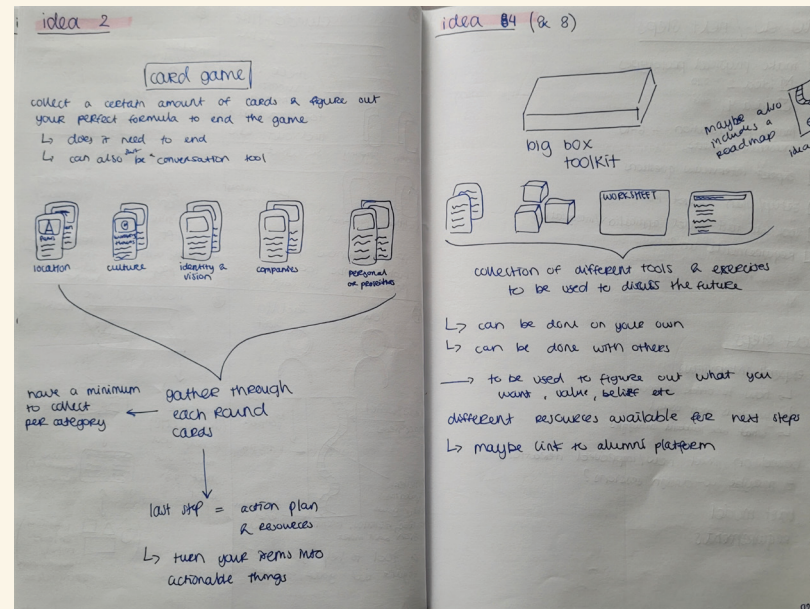 idea 2
card game
collect a certain amount of cards & figure out
your perfect formula to end the game
↳ does it need to end
↳ can also just be a conversation tool
location
culture
identity &
vision
companies
personal
or priorities
have a minimum
to collect
per category
gather through
each round
cards
last step = action plan
& resources
↳ turn your items into
actionable things
idea 4 (& 8)
big box
toolkit
maybe also
includes a
roadmap
idea
WORKSHEET
collection of different tools & exercises
to be used to discuss the future
↳ can be done on your own
↳ can be done with others
→ to be used to figure out what you
want, value, belief etc
different resources available for next steps
↳ maybe link to alumni platform